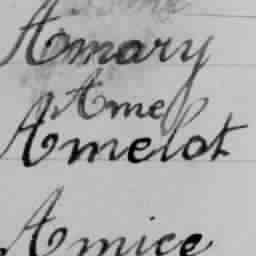 Amary
Amel
Amelot
Amice